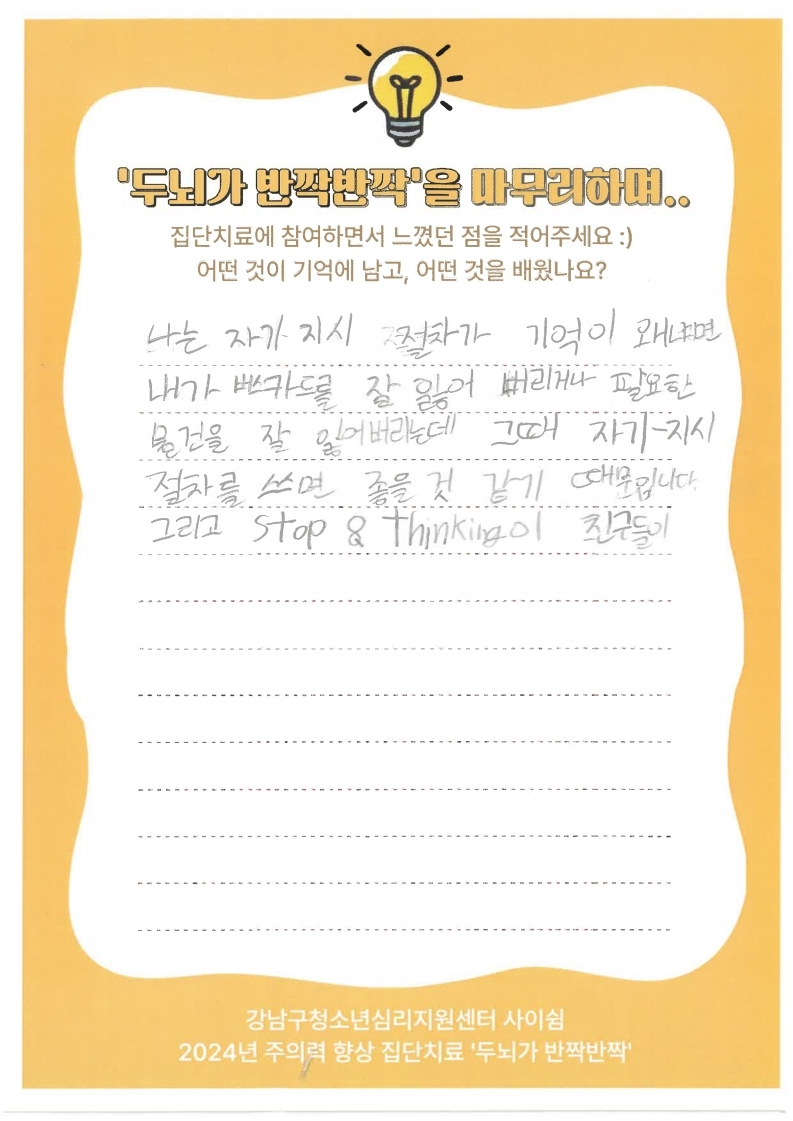 '두뇌가 반짝반짝'을 마무리하며..
집단치료에 참여하면서 느꼈던 점을 적어주세요 :)
어떤 것이 기억에 남고, 어떤 것을 배웠나요?
나는 자기-지시 절차가 기억이 왜냐면
내가 버스카드를 잘 잃어 버리거나 필요한
물건을 잘 잃어버리는데 그때 자기-지시
절차를 쓰면 좋을 것 같기 때문입니다.
그리고 Stop & Thinking이 친구들이
강남구청소년심리지원센터 사이쉼
2024년 주의력 향상 집단치료 '두뇌가 반짝반짝'